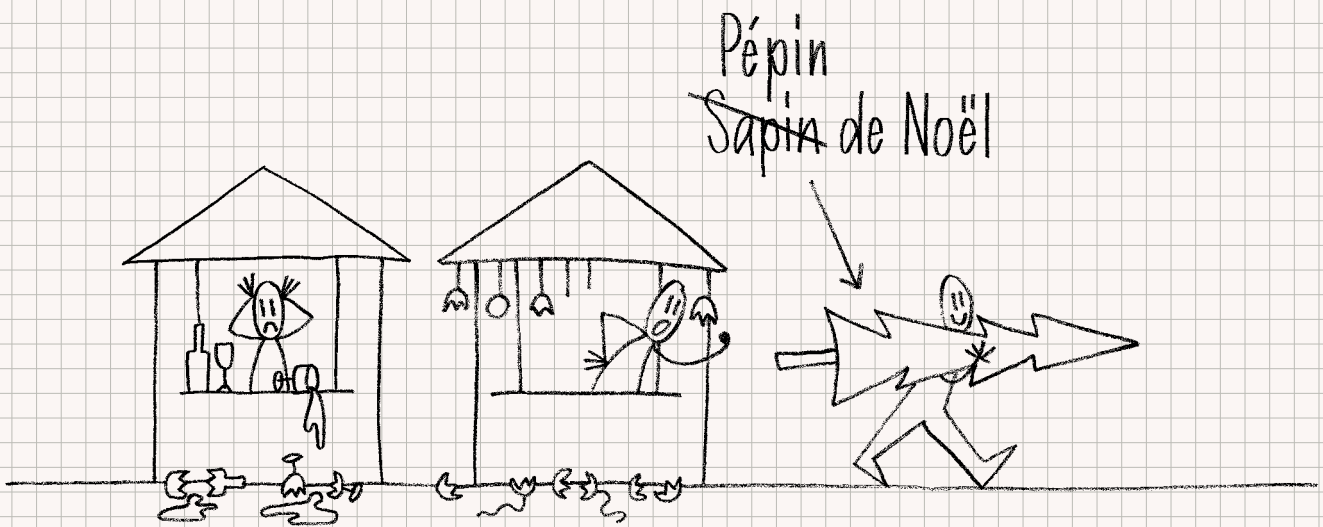 Pépin
Sapin de Noël